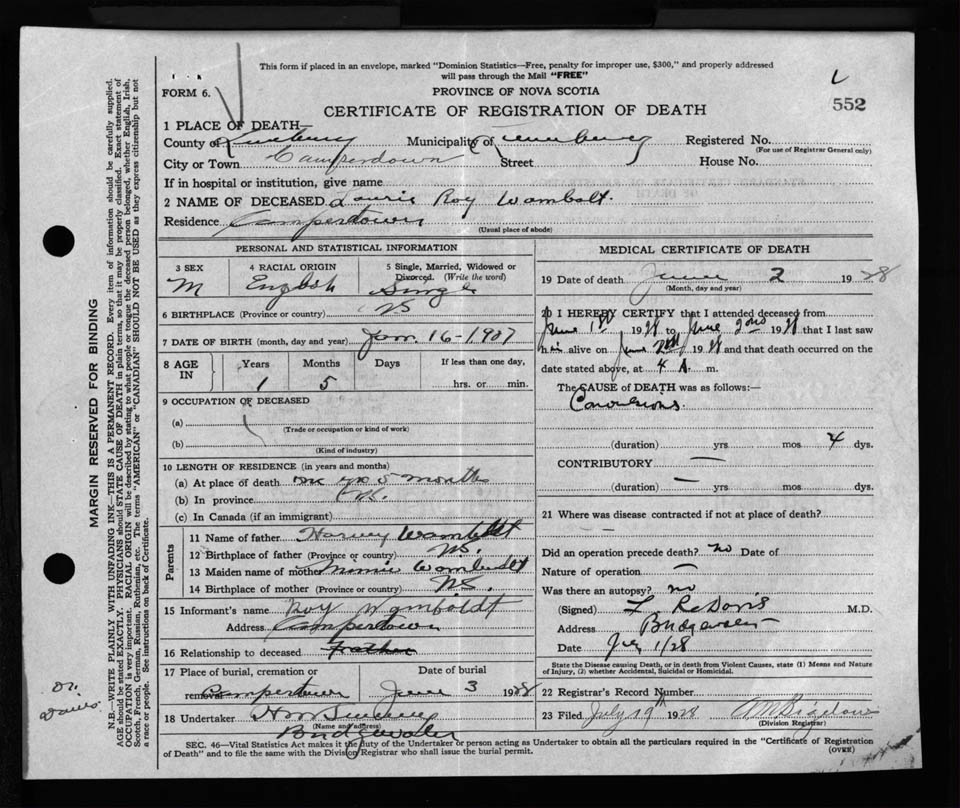 This form if placed in an envelope, marked "Dominion Statistics—Free, penalty for improper use, $300," and properly addressed
will pass through the Mail "FREE"
FORM 6.
PROVINCE OF NOVA SCOTIA
L
552
CERTIFICATE OF REGISTRATION OF DEATH
1 PLACE OF DEATH—
County of Lunenburg Municipality of Lunenburg Registered No.
(For use of Registrar General only)
City or Town Camperdown Street House No.
If in hospital or institution, give name
2 NAME OF DECEASED Laurie Roy Wambolt.
Residence Camperdown
(Usual place of abode)
PERSONAL AND STATISTICAL INFORMATION
3 SEX 4 RACIAL ORIGIN 5 Single, Married, Widowed or
Divorced. (Write the word)
M English Single
6 BIRTHPLACE (Province or country) NS
7 DATE OF BIRTH (month, day and year) Jan. 16-1907
8 AGE IN Years Months Days If less than one day,
1 5 hrs. or min.
9 OCCUPATION OF DECEASED
(a)
(Trade or occupation or kind of work)
(b)
(Kind of industry)
10 LENGTH OF RESIDENCE (in years and months)
(a) At place of death one yr 5 months
(b) In province
(c) In Canada (if an immigrant)
Parents
11 Name of father Harvey Wamboldt
12 Birthplace of father (Province or country) NS.
13 Maiden name of mother Minnie Wamboldt
14 Birthplace of mother (Province or country) NS
15 Informant's name Roy Wamboldt
Address Camperdown
16 Relationship to deceased Father
17 Place of burial, cremation or Date of burial
removal Camperdown June 3 1928
18 Undertaker
(Name and address)
Bridgewater
MEDICAL CERTIFICATE OF DEATH
19 Date of death June 2 1928
(Month, day and year)
20 I HEREBY CERTIFY that I attended deceased from
June 1st 1928 to June 2nd 1928 that I last saw
him alive on June 2nd 1928 and that death occurred on the
date stated above, at 4 A. m.
The CAUSE of DEATH was as follows:—
Convulsions
(duration) yrs mos 4 dys.
CONTRIBUTORY —
(duration) — yrs mos dys.
21 Where was disease contracted if not at place of death?
—
Did an operation precede death? no Date of
Nature of operation —
Was there an autopsy? no
(Signed) M.D.
Address Bridgewater
Date July 1/28
State the Disease causing Death, or in death from Violent Causes, state (1) Means and Nature
of Injury, (2) whether Accidental, Suicidal or Homicidal.
22 Registrar's Record Number
23 Filed July 19th 1928 A M Bigelow
(Division Registrar)
SEC. 46—Vital Statistics Act makes it the duty of the Undertaker or person acting as Undertaker to obtain all the particulars required in the "Certificate of Registration
of Death" and to file the same with the Division Registrar who shall issue the burial permit. (OVER)
MARGIN RESERVED FOR BINDING
N.B.—WRITE PLAINLY WITH UNFADING INK—THIS IS A PERMANENT RECORD. Every item of information should be carefully supplied.
AGE should be stated EXACTLY. PHYSICIANS should STATE CAUSE OF DEATH in plain terms, so that it may be properly classified. Exact statement of
OCCUPATION is very important. RACIAL ORIGIN will be described by stating to what people or tongue the deceased person belonged, whether English, Irish,
Scotch, French, German, Russian, Ruthenian, etc. The terms "AMERICAN" or "CANADIAN" SHOULD NOT BE USED as they express citizenship but not
a race or people. See instructions on back of Certificate.
Dr.
Davis